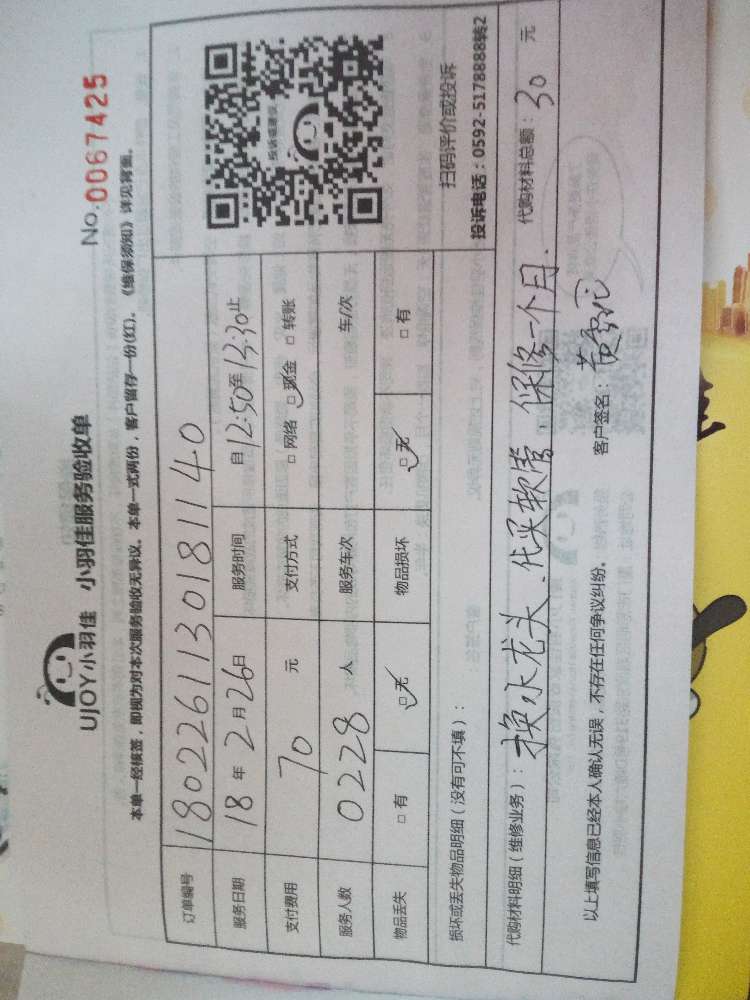 UJOY小羽佳 小羽佳服务验收单
No.0067425
本单一经核签，即视为对本次服务验收无异议。本单一式两份，客户留存一份(红)。《维保须知》详见背面。
订单编号 180226113018 1140
服务日期 18 年 2 月 26 日 服务时间 自 12:50 至 13:30 止
支付费用 70 元 支付方式 □ 网络 □ 现金 □ 转账
服务人数 0228 人 服务车次 车/次
物品丢失 □ 有 □ 无 物品损坏 □ 无 □ 有
投诉或建议
扫码评价或投诉
投诉电话：0592-5178888转2
损坏或丢失物品明细（没有可不填）：
代购材料明细（维修业务）： 换水龙头、代买软管 保修一个月. 代购材料总额： 30 元
以上填写信息已经本人确认无误，不存在任何争议纠纷。 客户签名：